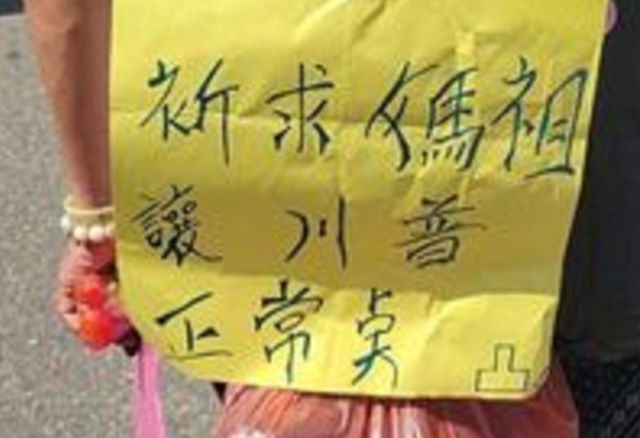 祈求媽祖
讓川普
正常奌 凸